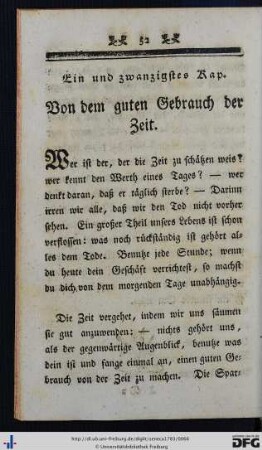 52
Ein und zwanzigstes Kap.
Von dem guten Gebrauch der
Zeit.
Wer ist der, der die Zeit zu schätzen weis?
wer kennt den Werth eines Tages? — wer
denkt daran, daß er täglich sterbe? — Darinn
irren wir alle, daß wir den Tod nicht vorher
sehen. Ein großer Theil unsers Lebens ist schon
verflossen: was noch rückständig ist gehört al-
les dem Tode. Benutze jede Stunde; wenn
du heute dein Geschäft verrichtest, so machst
du dich von dem morgenden Tage unabhängig.
Die Zeit vergehet, indem wir uns säumen
sie gut anzuwenden: — nichts gehört uns,
als der gegenwärtige Augenblick, benutze was
dein ist und fange einmal an, einen guten Ge-
brauch von der Zeit zu machen. Die Spar-
http://dl.ub.uni-freiburg.de/diglit/seneca1781/0064
© Universitätsbibliothek Freiburg
DFG